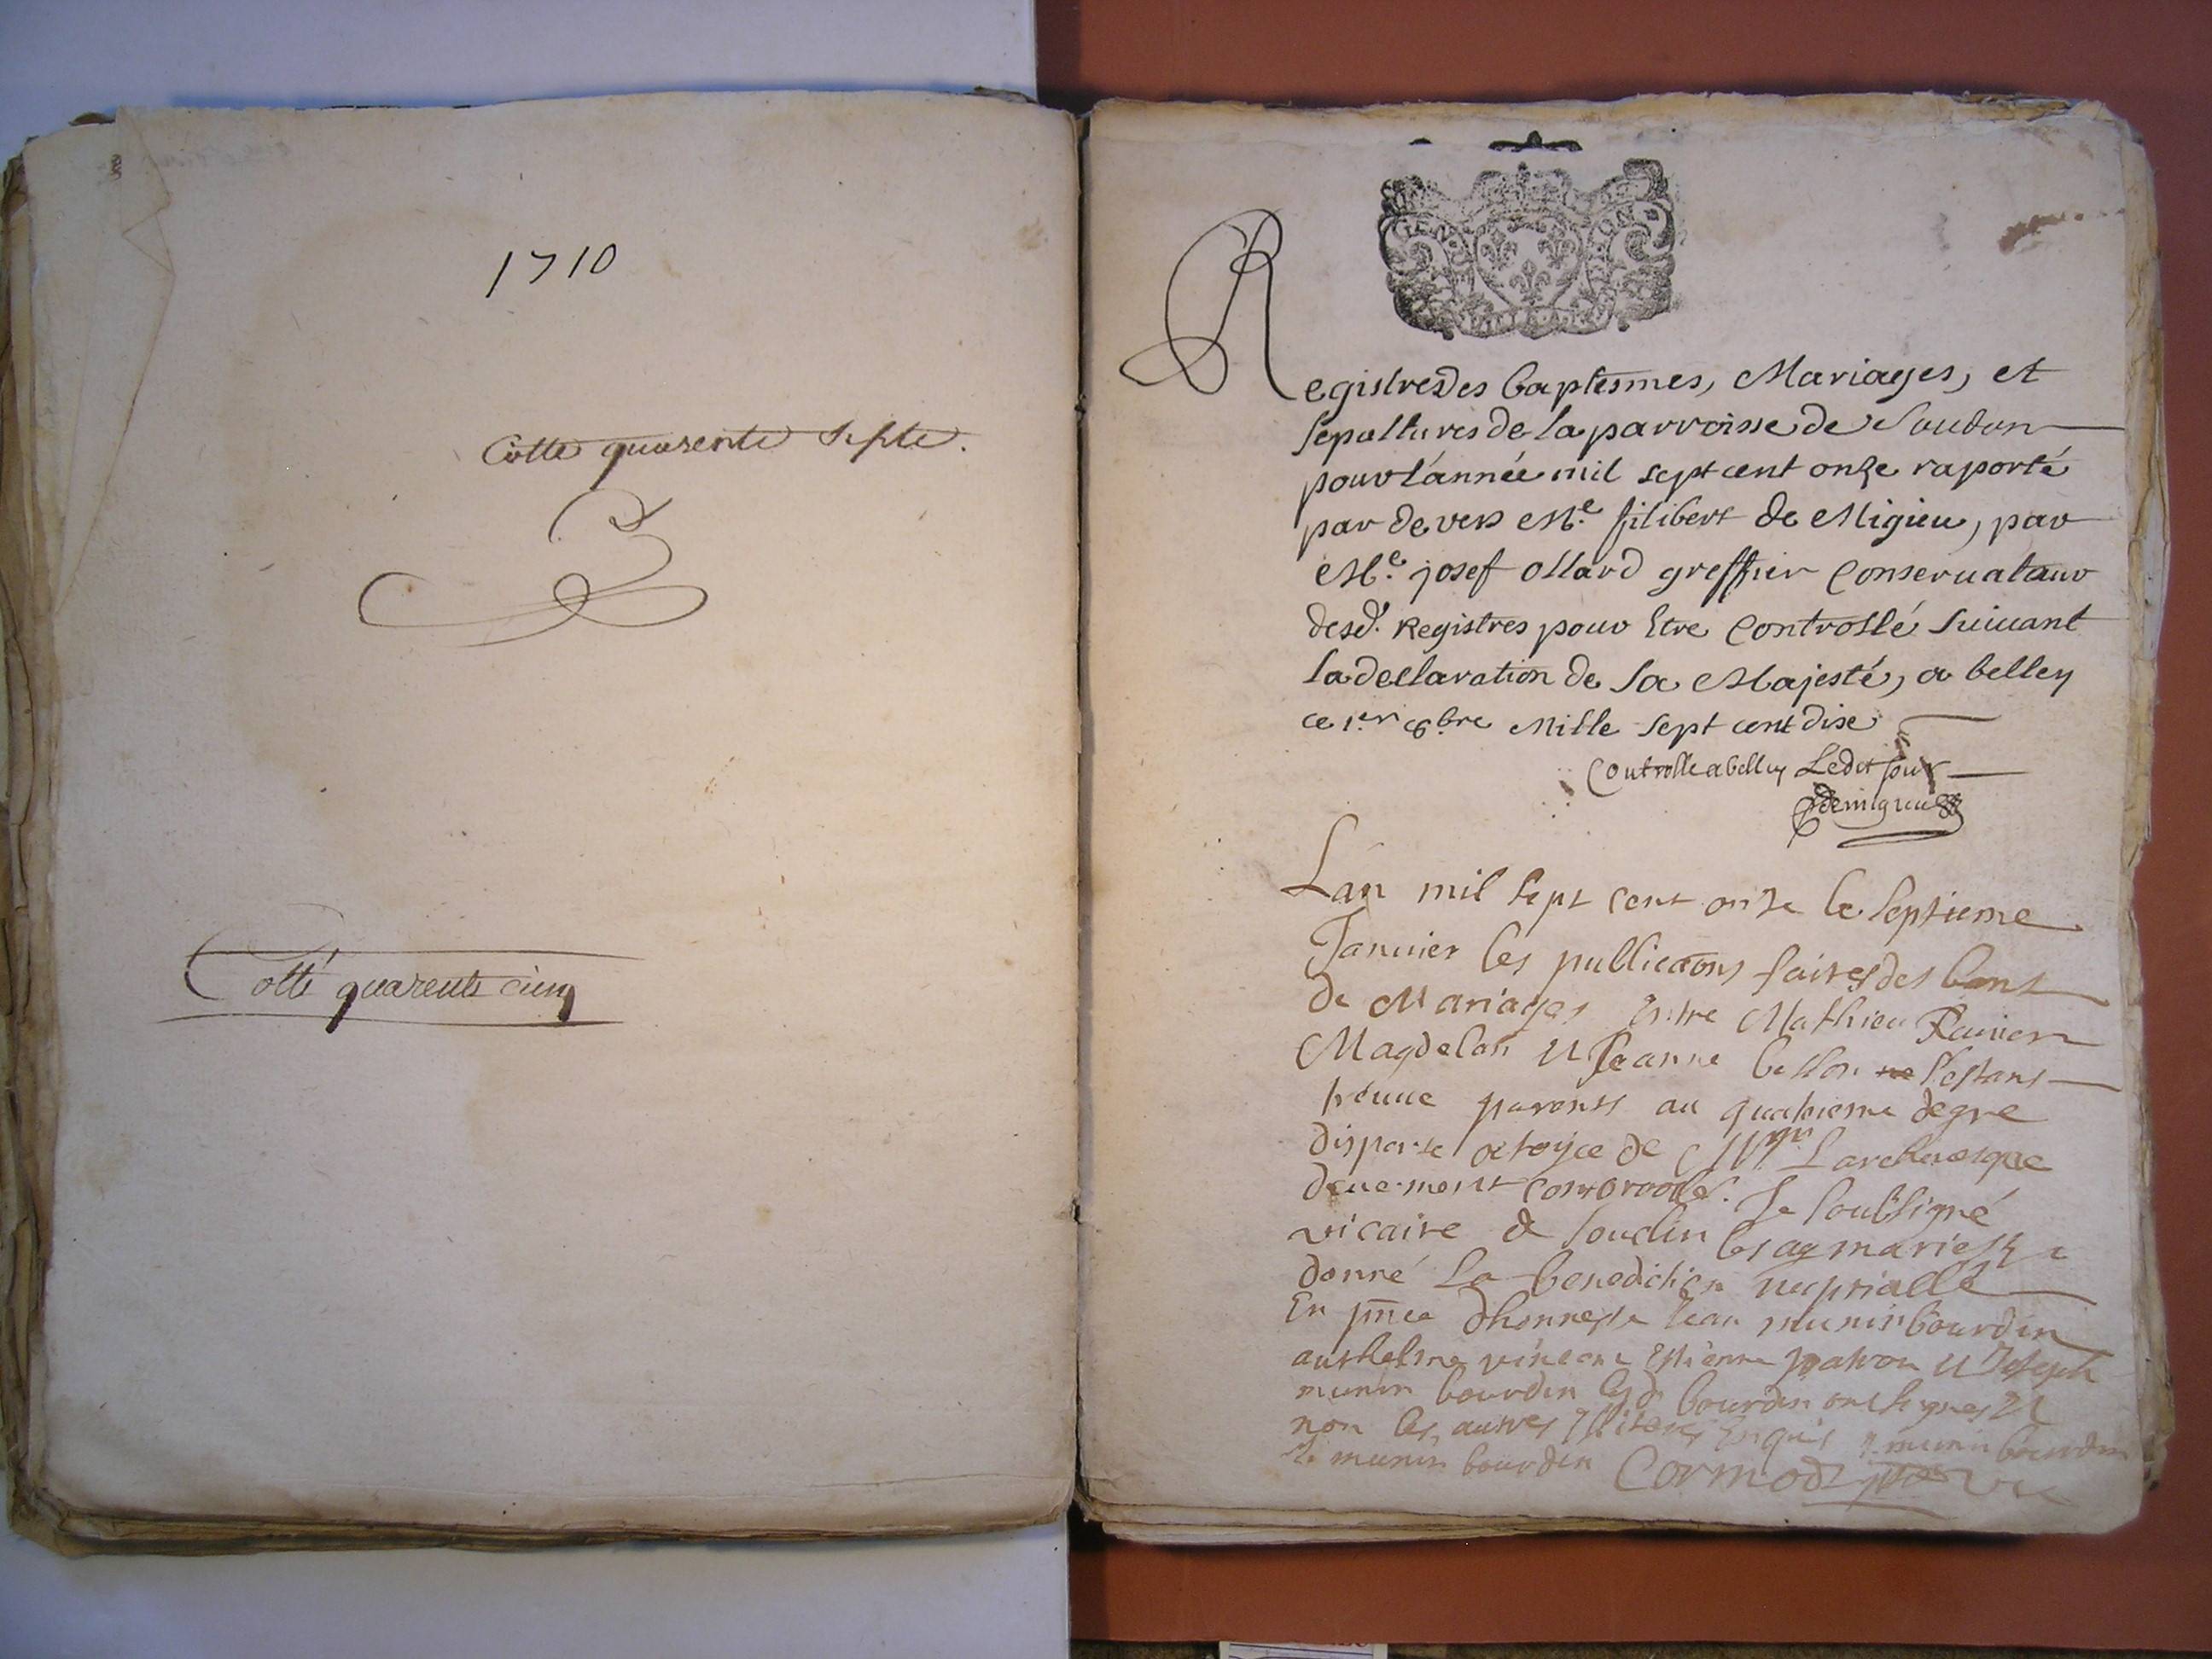 1710
Cotte quarente septe.
Cotté quarente cinq
Registres des baptesmes, Mariages, et
sepultures de la parroisse de Soudon
pour l'année mil sept cent onze raporté
par devers Me. filibert de Migieu, par
Me. josef ollard greffier Conservataur
desd. Registres pour Etre Controllé suivant
la declaration de sa Majesté, a belley
ce 1.er 8bre Mille sept cent dise
Controlle a belley Ledit jour
Demigieu
L'an mil sept cent onze le septieme
Januier les publicaons faites des bans
de Mariages Entre Mathieu Rauier
Magdelon et Jeanne bellon s'estans
treuue parents au quatrieme degre
dispense octoyee de Mgr Larcheuesque
deuement Je soubsigné
vicaire de soudon les ay mariés
donné La benediction nuptialle
En pnce dhonneste Jean munin bourdin
anthelme Estienne patron et Joseph
munin bourdin lesd. bourdin ont signes et
non les autres Enquis munin bourdin
munin bourdin Cormod